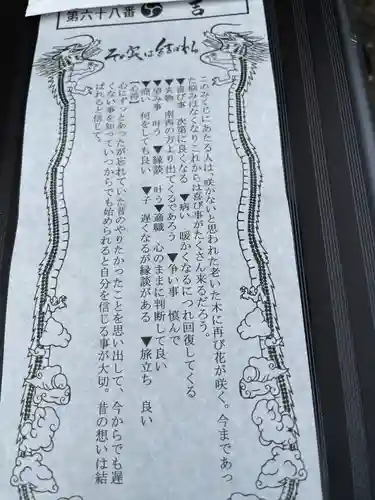 第六十八番
吉
その実は結ばれる
このみくじにあたる人は、咲かないと思われた老いた木に再び花が咲く。今まであっ
た悩みはなくなりこれからは喜び事がたくさん来るだろう。
▼喜び事 次第に良くなる ▼病い 暖かくなるにつれ回復してくる
▼失物 南西の方より出てくるであろう ▼争い事 慎んで
▼望み事 叶う ▼縁談 叶う ▼適職 心のままに判断して良い
▼商い 何をしても良い ▼子 遅くなるが縁談がある ▼旅立ち 良い
【心得】
心にずっとあったが忘れていた昔のやりたかったことを思い出して、今からでも遅
くない事を知っていつからでも始められると自分を信じる事が大切。昔の想いは結
ばれると信じて。